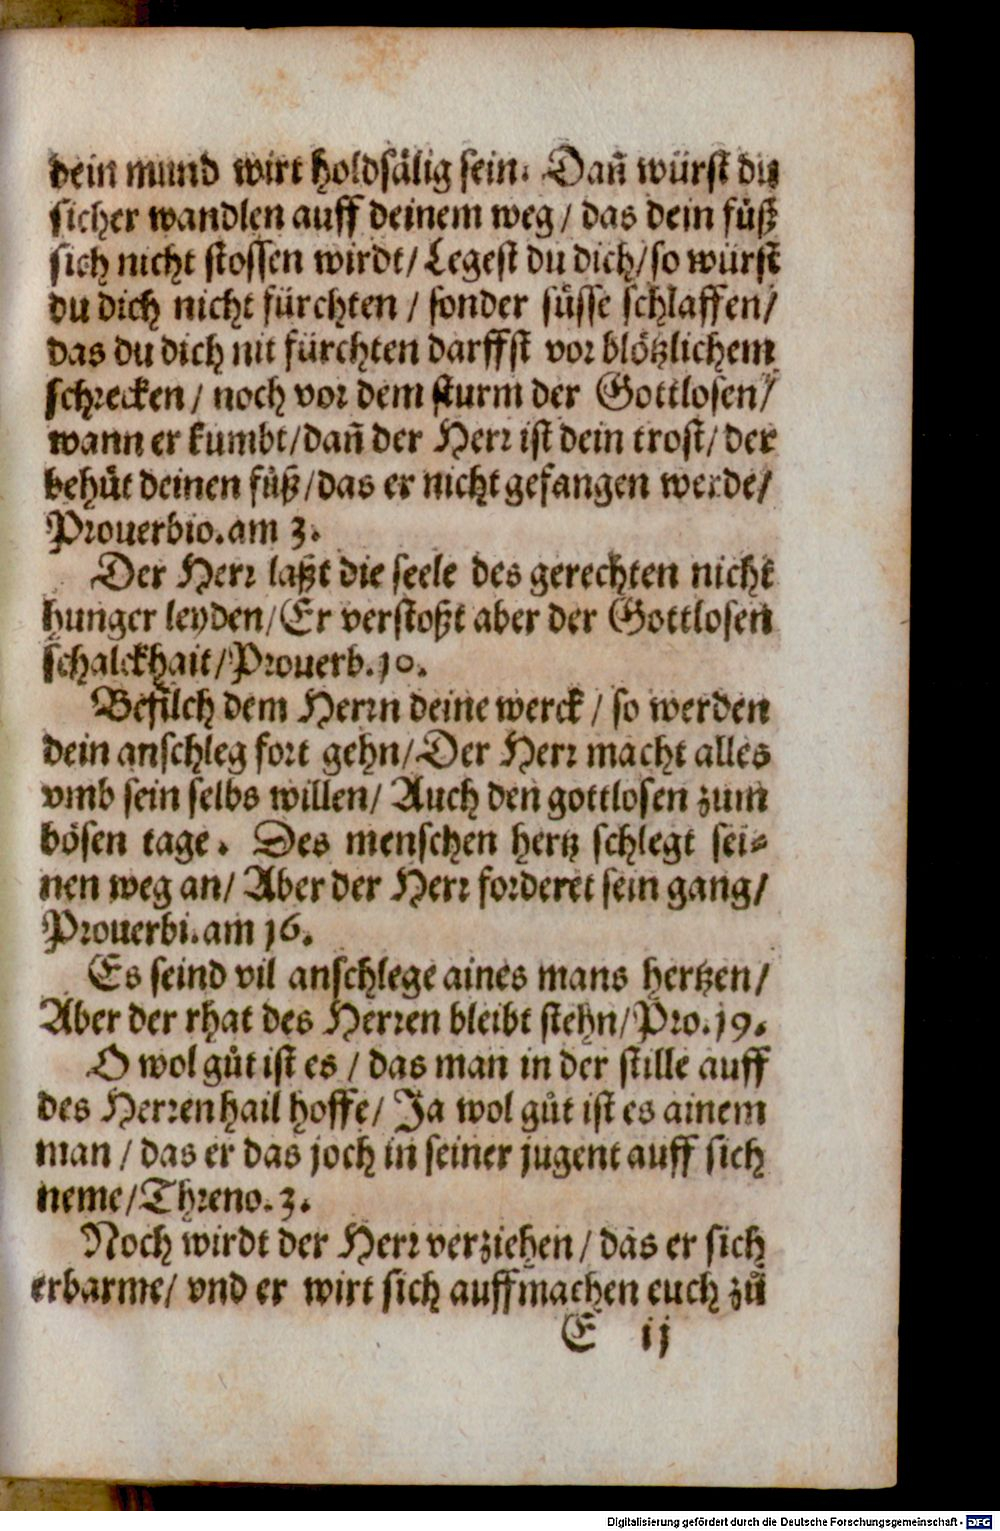 dein mund wirt holdsälig sein. Dañ würst du
sicher wandlen auff deinem weg / das dein fůß
sich nicht stossen wirdt / Legest du dich / so würst
du dich nicht fürchten / sonder sůsse schlaffen /
das du dich nit fürchten darffst vor blötzlichem
schrecken / noch vor dem sturm der Gottlosen /
wann er kumbt / dañ der Herr ist dein trost / der
behůt deinen fůß / das er nicht gefangen werde /
Prouerbio. am 3.
Der Herr laßt die seele des gerechten nicht
hunger leyden / Er verstoßt aber der Gottlosen
schalckhait / Prouerb. 10.
Befilch dem Herrn deine werck / so werden
dein anschleg fort gehn / Der Herr macht alles
vmb sein selbs willen / Auch den gottlosen zum
bösen tage. Des menschen hertz schlegt sei-
nen weg an / Aber der Herr forderet sein gang /
Prouerbi. am 16.
Es seind vil anschlege aines mans hertzen /
Aber der rhat des Herren bleibt stehn / Pro. 19.
O wol gůt ist es / das man in der stille auff
des Herren hail hoffe / Ja wol gůt ist es ainem
man / das er das joch in seiner jugent auff sich
neme / Threno. 3.
Noch wirdt der Herr verziehen / das er sich
erbarme / vnd er wirt sich auffmachen euch zů
E ij
Digitalisierung gefördert durch die Deutsche Forschungsgemeinschaft - DFG